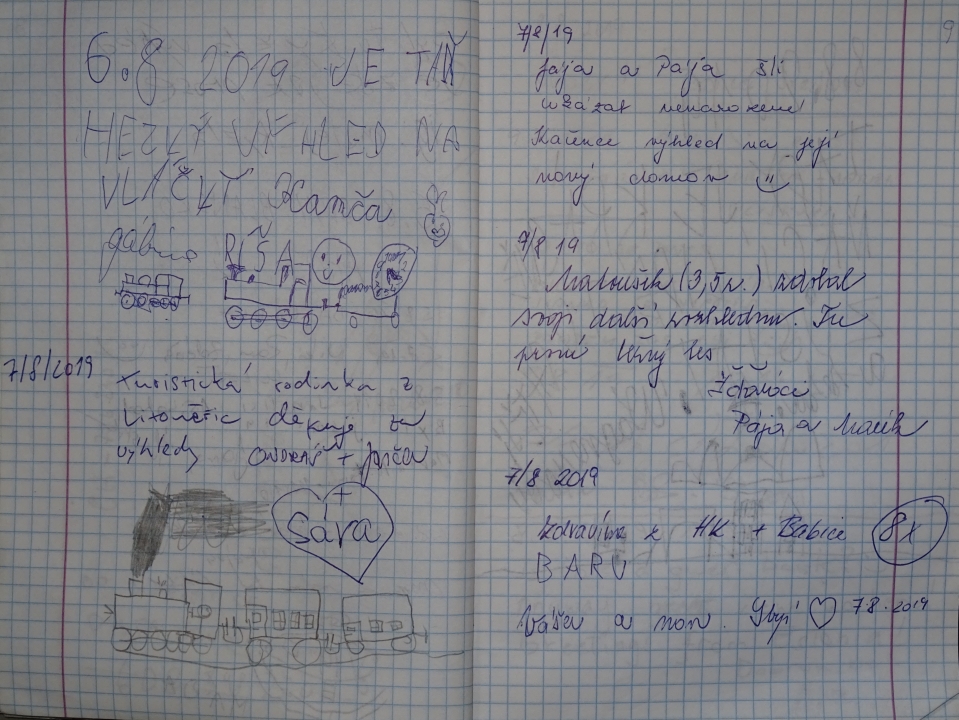 6.8 2019 JE TAM
HEZKÝ VÝHLED NA
VLÁČKY Kamča
RÍŠA
7/8/2019
Turistická rodinka z
Litoměřic děkuje za
výhledy ONDRÁŠ + Jarča
+
Sára
9
7/8/19
Jája a Pája šli
ukázat nenarozené
Kačence výhled na její
nový domov
7/8 19
Matoušek (3,5r.) zdolal
svoji další rozhlednu. Tu
první
Pája a Mařík
7/8 2019
Zdravíme z HK. + Babice 8x
BARU
Váša a mon. 7.8.2019